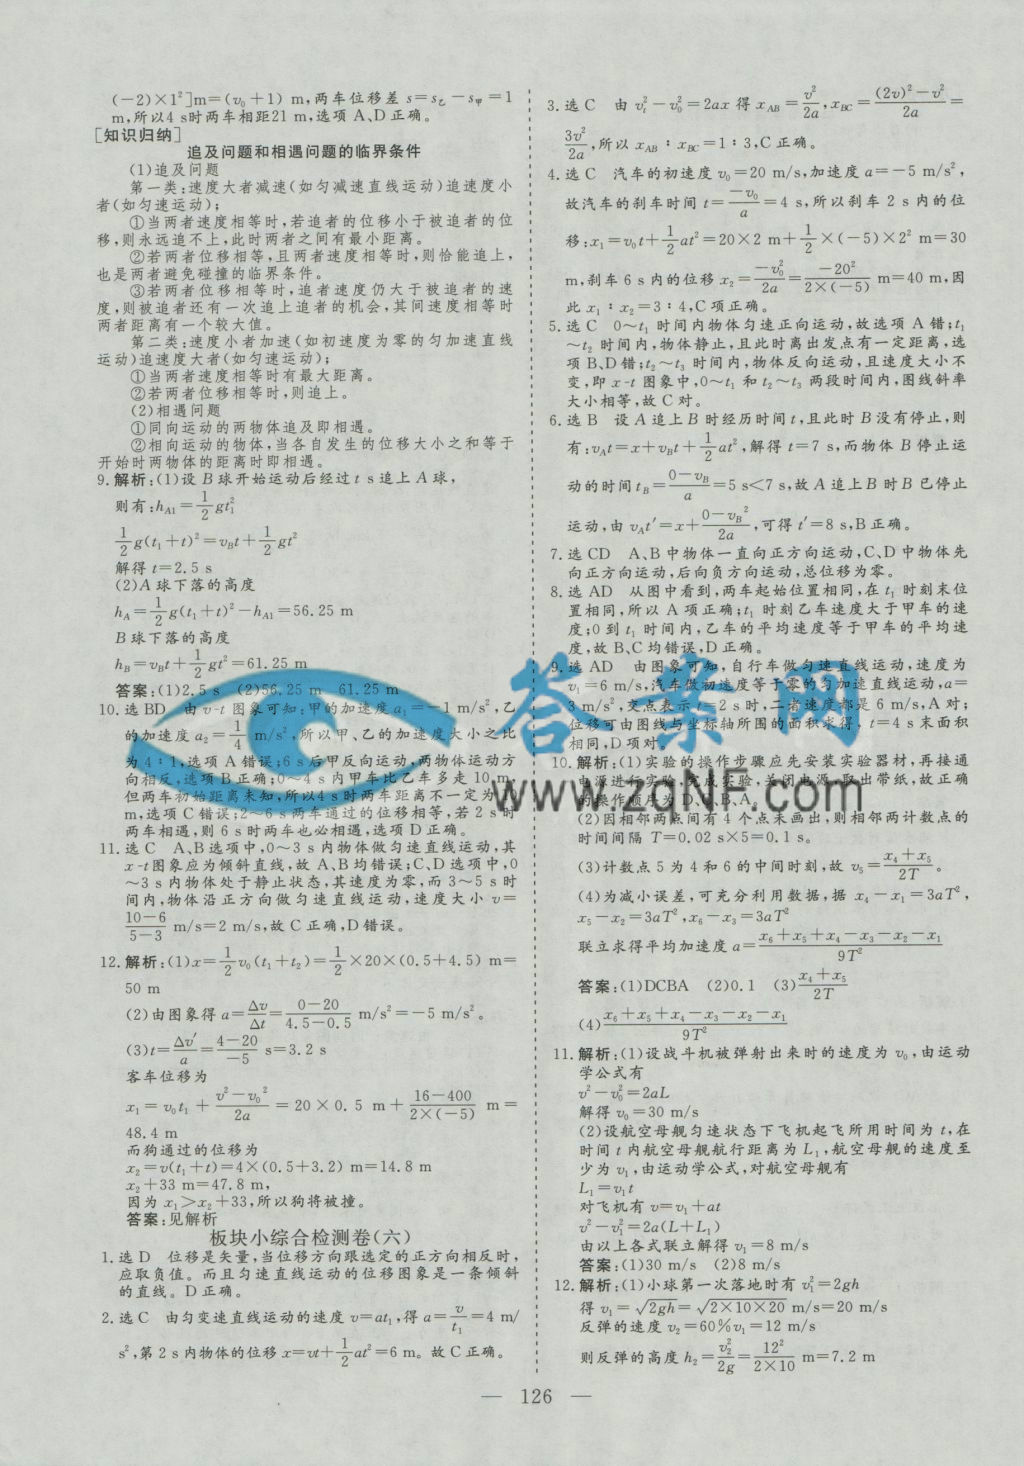 (-2)×1²]m=(v₀+1) m,两车位移差 s=s乙-s甲=1
m,所以4 s时两车相距21 m,选项A、D正确。
[知识归纳]
追及问题和相遇问题的临界条件
(1)追及问题
第一类:速度大者减速(如匀减速直线运动)追速度小
者(如匀速运动);
①当两者速度相等时,若追者的位移小于被追者的位
移,则永远追不上,此时两者之间有最小距离。
②若两者位移相等,且两者速度相等时,则恰能追上,
也是两者避免碰撞的临界条件。
③若两者位移相等时,追者速度仍大于被追者的速
度,则被追者还有一次追上追者的机会,其间速度相等时
两者距离有一个较大值。
第二类:速度小者加速(如初速度为零的匀加速直线
运动)追速度大者(如匀速运动);
①当两者速度相等时有最大距离。
②若两者位移相等时,则追上。
(2)相遇问题
①同向运动的两物体追及即相遇。
②相向运动的物体,当各自发生的位移大小之和等于
开始时两物体的距离时即相遇。
9.解析:(1)设B球开始运动后经过t s追上A球,
则有:hA1=1/2gt₁²
1/2g(t₁+t)²=vBt+1/2gt²
解得t=2.5 s
(2)A球下落的高度
hA=1/2g(t₁+t)²-hA1=56.25 m
B球下落的高度
hB=vBt+1/2gt²=61.25 m
答案:(1)2.5 s (2)56.25 m 61.25 m
10.选BD 由v-t图象可知:甲的加速度a₁=-1 m/s²,乙
的加速度a₂=1/4 m/s²,所以甲、乙的加速度大小之比
为4∶1,选项A错误;6 s后甲反向运动,两物体运动方
向相反,选项B正确;0~4 s内甲车比乙车多走10 m,
但两车初始距离未知,所以4 s时两车距离不一定为10
m,选项C错误;2~6 s两车通过的位移相等,若2 s时
两车相遇,则6 s时两车也必相遇,选项D正确。
11.选C A、B选项中,0~3 s内物体做匀速直线运动,其
x-t图象应为倾斜直线,故A、B均错误;C、D选项中,0
~3 s内物体处于静止状态,其速度为零,而3~5 s时
间内,物体沿正方向做匀速直线运动,速度大小v=
10-6/5-3 m/s=2 m/s,故C正确,D错误。
12.解析:(1)x=1/2v₀(t₁+t₂)=1/2×20×(0.5+4.5) m=
50 m
(2)由图象得a=Δv/Δt=0-20/4.5-0.5 m/s²=-5 m/s²。
(3)t=Δv′/a=4-20/-5 s=3.2 s
客车位移为
x₁=v₀t₁+v²-v₀²/2a=20×0.5 m+16-400/2×(-5) m=
48.4 m
而狗通过的位移为
x₂=v(t₁+t)=4×(0.5+3.2) m=14.8 m
x₂+33 m=47.8 m,
因为x₁>x₂+33,所以狗将被撞。
答案:见解析
板块小综合检测卷(六)
1.选D 位移是矢量,当位移方向跟选定的正方向相反时,
应取负值。而且匀速直线运动的位移图象是一条倾斜
的直线。D正确。
2.选C 由匀变速直线运动的速度v=at₁,得a=v/t₁=4 m/
s²,第2 s内物体的位移x=vt+1/2at²=6 m。故C正确。
3.选C 由vt²-v₀²=2ax得xAB=v²/2a,xBC=(2v)²-v²/2a=
3v²/2a,所以xAB∶xBC=1∶3,C正确。
4.选C 汽车的初速度v₀=20 m/s,加速度a=-5 m/s²,
故汽车的刹车时间t=-v₀/a=4 s,所以刹车2 s内的位
移:x₁=v₀t+1/2at²=20×2 m+1/2×(-5)×2² m=30
m,刹车6 s内的位移x₂=-v₀²/2a=-20²/2×(-5) m=40 m,因
此x₁∶x₂=3∶4,C项正确。
5.选C 0~t₁时间内物体匀速正向运动,故选项A错;t₁
~t₂时间内,物体静止,且此时离出发点有一定距离,选
项B、D错;t₂~t₃时间内,物体反向运动,且速度大小不
变,即x-t图象中,0~t₁和t₂~t₃两段时间内,图线斜率
大小相等,故C对。
6.选B 设A追上B时经历时间t,且此时B没有停止,则
有:vAt=x+vBt+1/2at²,解得t=7 s,而物体B停止运
动的时间tB=0-vB/a=5 s<7 s,故A追上B时B已停止
运动,由vAt′=x+0-vB²/2a,可得t′=8 s,B正确。
7.选CD A、B中物体一直向正方向运动,C、D中物体先
向正方向运动,后向负方向运动,总位移为零。
8.选AD 从图中看到,两车起始位置相同,在t₁时刻末位
置相同,所以A项正确;t₁时刻乙车速度大于甲车的速
度;0到t₁时间内,乙车的平均速度等于甲车的平均速
度,故B、C均错误,D正确。
9.选AD 由图象可知,自行车做匀速直线运动,速度为
v₁=6 m/s,汽车做初速度等于零的匀加速直线运动,a=
3 m/s²,交点表示t=2 s时,二者速度都是6 m/s,A对;
位移可由图线与坐标轴所围的面积求得,t=4 s末面积
相同,D项对。
10.解析:(1)实验的操作步骤应先安装实验器材,再接通
电源进行实验,完成实验,关闭电源,取出带纸,故正确
的操作顺序为D、C、B、A。
(2)因相邻两点间有4个点未画出,则相邻两计数点的
时间间隔T=0.02 s×5=0.1 s。
(3)计数点5为4和6的中间时刻,故v₅=x₄+x₅/2T。
(4)为减小误差,可充分利用数据,据x₄-x₁=3aT²,
x₅-x₂=3aT²,x₆-x₃=3aT²
联立求得平均加速度a=x₆+x₅+x₄-x₃-x₂-x₁/9T²
答案:(1)DCBA (2)0.1 (3)x₄+x₅/2T
(4)x₆+x₅+x₄-x₃-x₂-x₁/9T²
11.解析:(1)设战斗机被弹射出来时的速度为v₀,由运动
学公式有
v²-v₀²=2aL
解得v₀=30 m/s
(2)设航空母舰匀速状态下飞机起飞所用时间为t,在
时间t内航空母舰航行距离为L₁,航空母舰的速度至
少为v₁,由运动学公式,对航空母舰有
L₁=v₁t
对飞机有v=v₁+at
v²-v₁²=2a(L+L₁)
由以上各式联立解得v₁=8 m/s
答案:(1)30 m/s (2)8 m/s
12.解析:(1)小球第一次落地时有v₁²=2gh
得v₁=√2gh=√2×10×20 m/s=20 m/s
反弹的速度v₂=60%v₁=12 m/s
则反弹的高度h₂=v₂²/2g=12²/2×10 m=7.2 m
— 126 —
答案网
www.zqNF.com